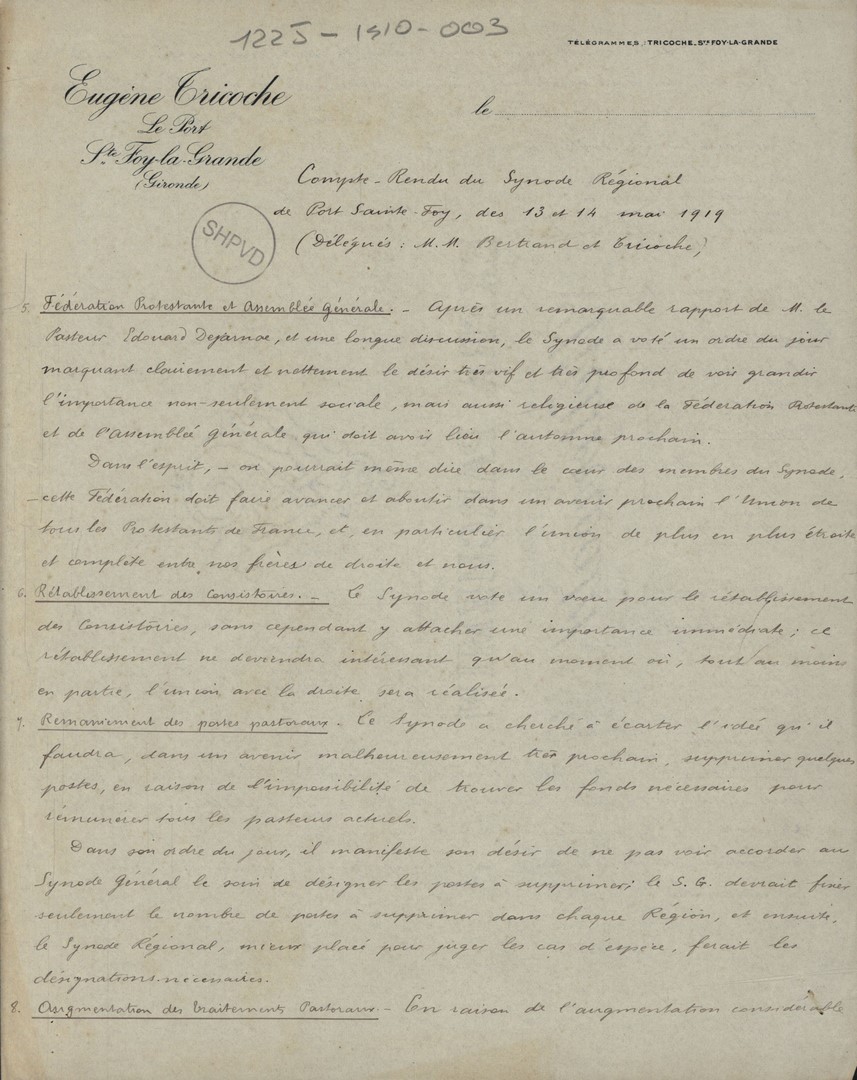 1225-1910-003
TÉLÉGRAMMES : TRICOCHE. Ste FOY-LA-GRANDE
Eugène Tricoche
Le Port
Ste Foy-la-Grande
(Gironde)
le
SHPVD
Compte-Rendu du Synode Régional
de Port Sainte-Foy, des 13 et 14 mai 1919
(Délégués : M.M. Bertrand et Tricoche)
5. Fédération Protestante et Assemblée Générale. - Après un remarquable rapport de M. le
Pasteur Edouard , et une longue discussion, le Synode a voté un ordre du jour
marquant clairement et nettement le désir très vif et très profond de voir grandir
l'importance non-seulement sociale, mais aussi religieuse de la Fédération Protestante
et de l'Assemblée Générale qui doit avoir lieu l'automne prochain.
Dans l'esprit, - on pourrait même dire dans le cœur des membres du Synode,
- cette Fédération doit faire avancer et aboutir dans un avenir prochain l'Union de
tous les Protestants de France, et, en particulier l'union de plus en plus étroite
et complète entre nos frères de droite et nous.
6. Rétablissement des Consistoires. - Le Synode vote un vœu pour le rétablissement
des Consistoires, sans cependant y attacher une importance immédiate ; ce
rétablissement ne deviendra intéressant qu'au moment où, tout au moins
en partie, l'union avec la droite sera réalisée.
7. Remaniement des postes pastoraux. - Le Synode a cherché à écarter l'idée qu'il
faudra, dans un avenir malheureusement très prochain, supprimer quelques
postes, en raison de l'impossibilité de trouver les fonds nécessaires pour
rémunérer tous les pasteurs actuels.
Dans son ordre du jour, il manifeste son désir de ne pas voir accorder au
Synode Général le soin de désigner les postes à supprimer ; le S.G. devrait fixer
seulement le nombre de postes à supprimer dans chaque Région, et ensuite,
le Synode Régional, mieux placé pour juger les cas d'espèce, ferait les
désignations nécessaires.
8. Augmentation des Traitements Pastoraux. - En raison de l'augmentation considérable